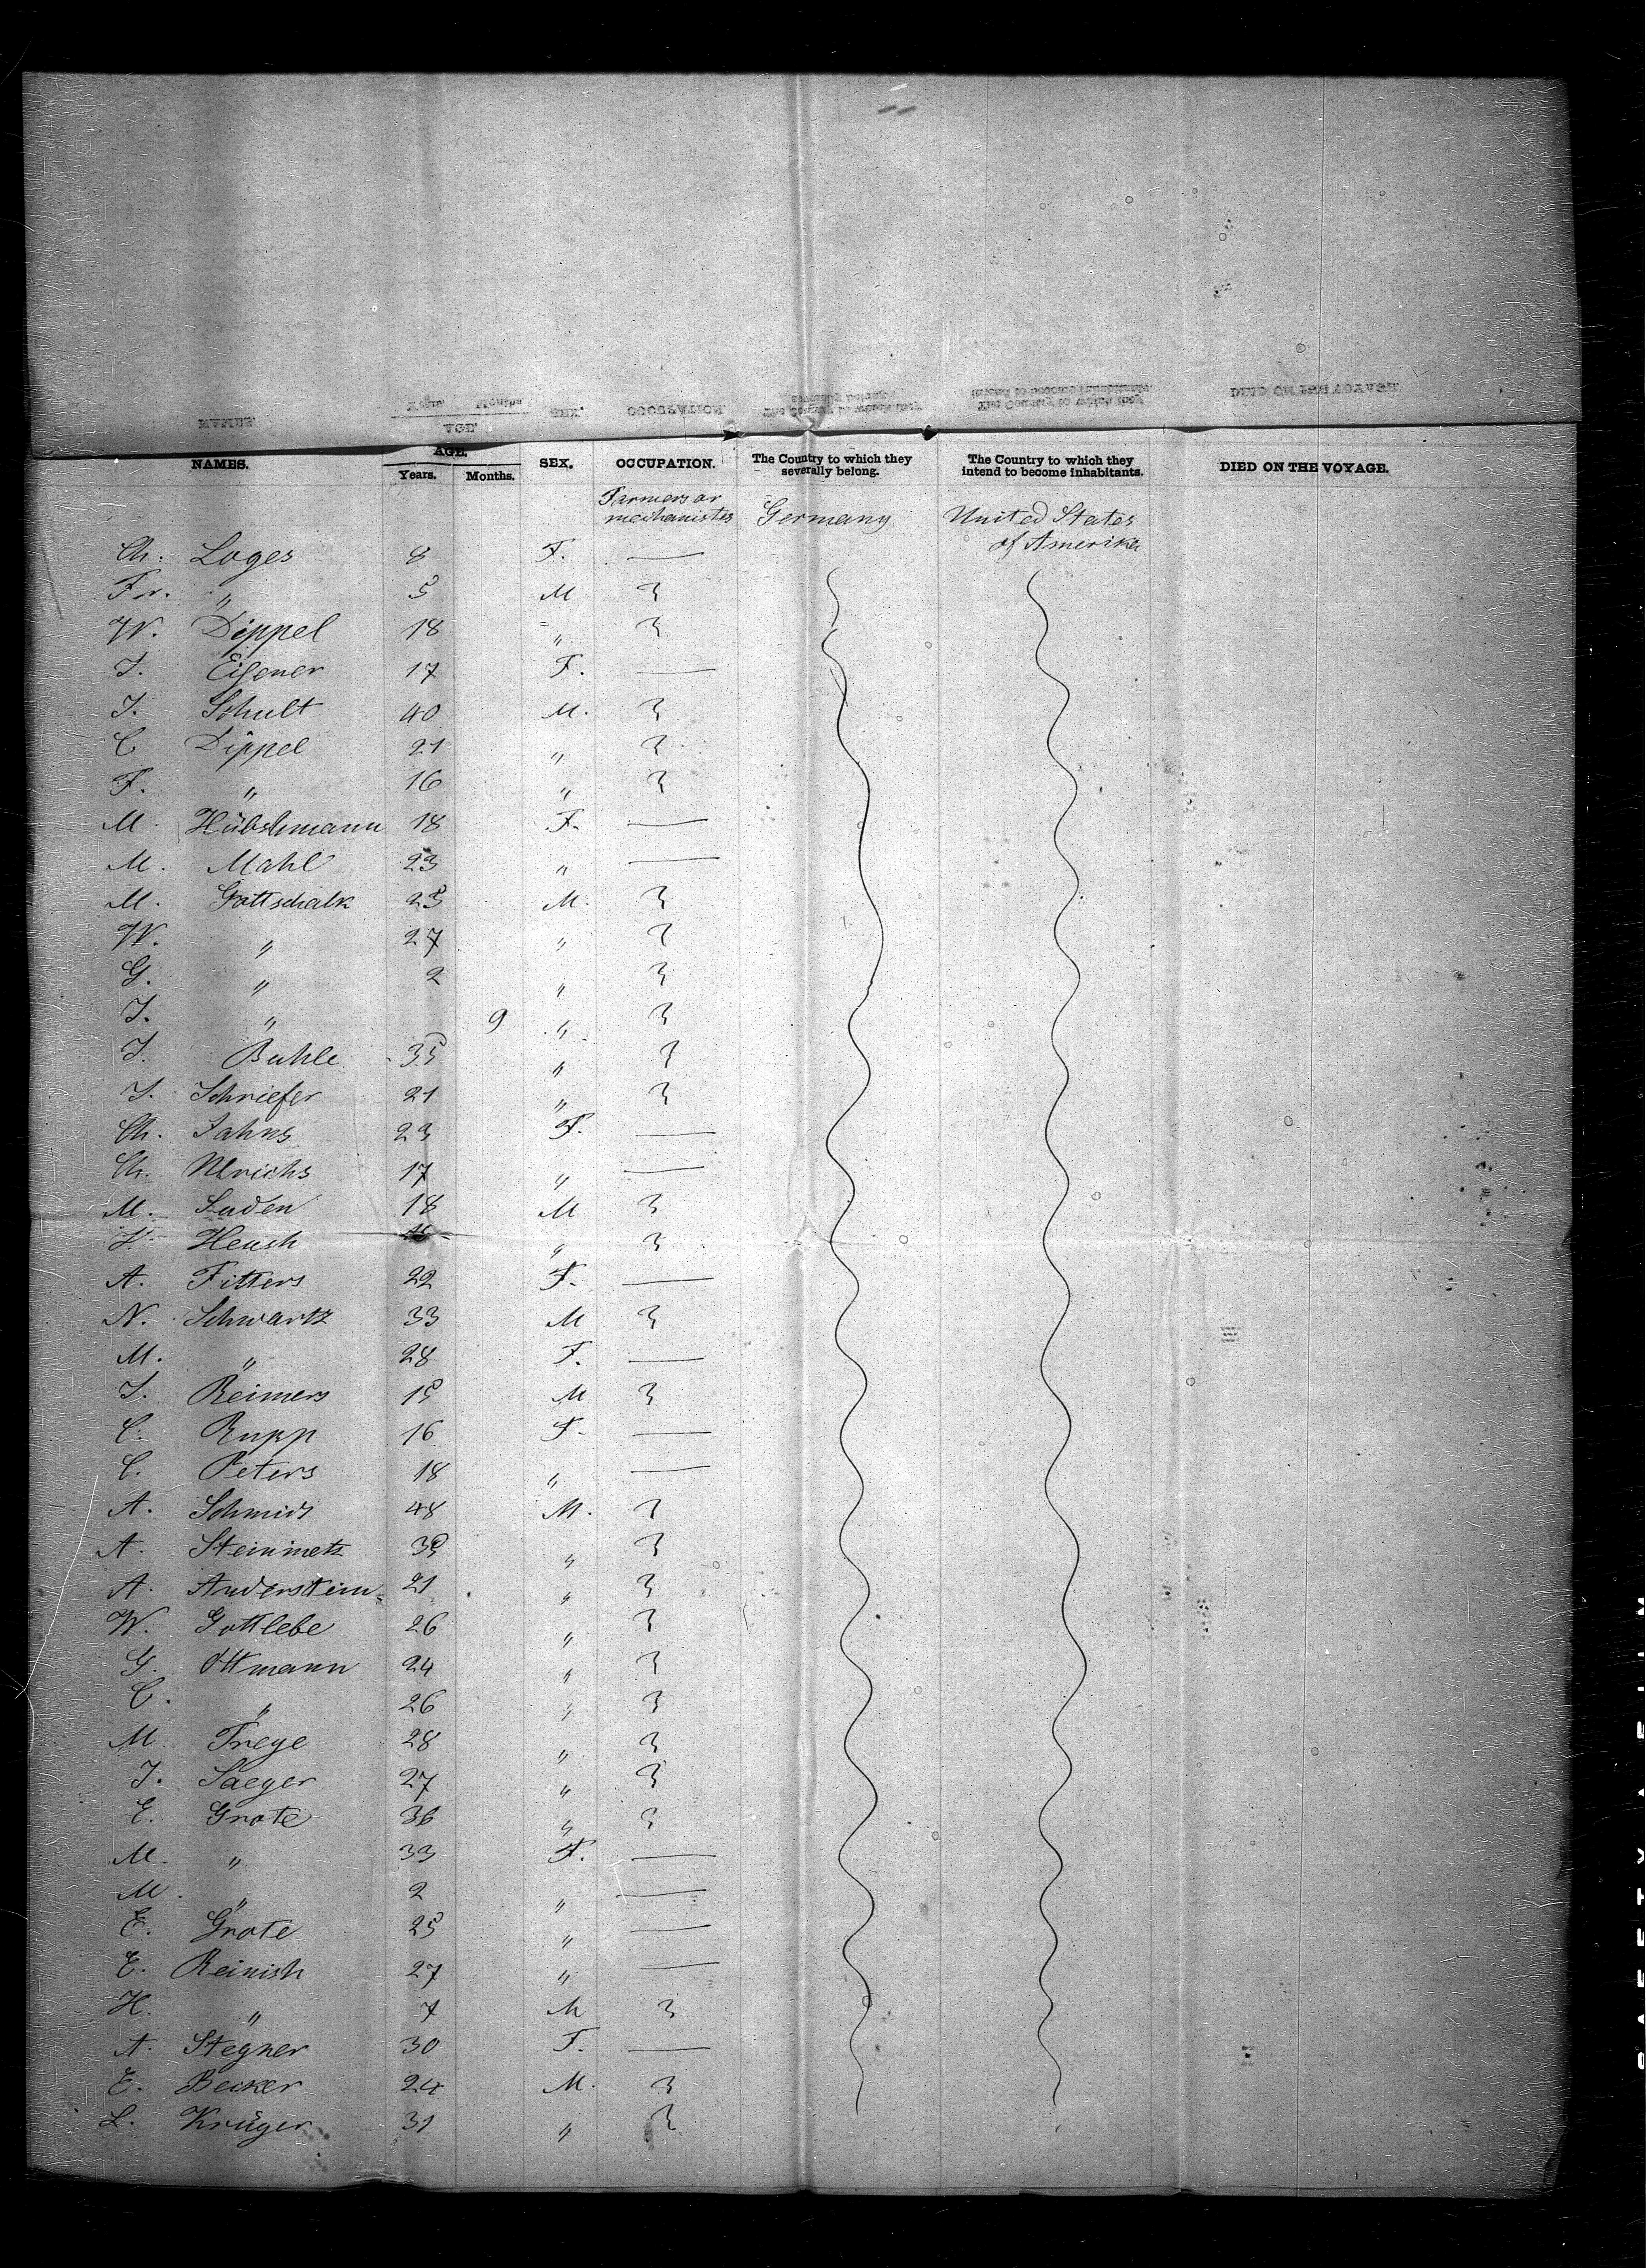 NAMES. AGE. Years. Months. SEX. OCCUPATION. The Country to which they severally belong. The Country to which they intend to become inhabitants. DIED ON THE VOYAGE.
Farmers or mechanistes Germany United States of Amerika
Ch. Loges 8 F. —
Fr. " 5 M
W. Dippel 18 "
J. Eisener 17 F. —
J. Schult 40 M.
C Dippel 21 "
F. " 16 "
M. Hübshmann 18 F. —
M. Mahl 23 " —
M. Gottschalk 25 M.
W. " 27 "
G. " 2 "
J. " 9 "
J. Buhle 35 "
J. Schriefer 21 "
Ch. Jahns 23 F. —
Ch. Ulrichs 17 " —
M. Luden 18 M
Heush "
A. Fitters 22 F. —
N. Schwartz 33 M
M. " 28 F. —
J. Reimers 15 M
C. Rupp 16 F. —
C. Peters 18 " —
A. Schmids 48 M.
A. Steinmetz 35 "
A. Anderstein 21 "
W. Gottlebe 26 "
G. Ottmann 24 "
C. " 26 "
M. Freye 28 "
J. Saeger 27 "
E. Grote 36 "
M. " 33 F. —
M. " 2 " —
E. Grote 25 " —
E. Reinish 27 " —
H. " 7 M
A. Stegner 30 F. —
E. Becker 24 M.
L. Krüger 31 "